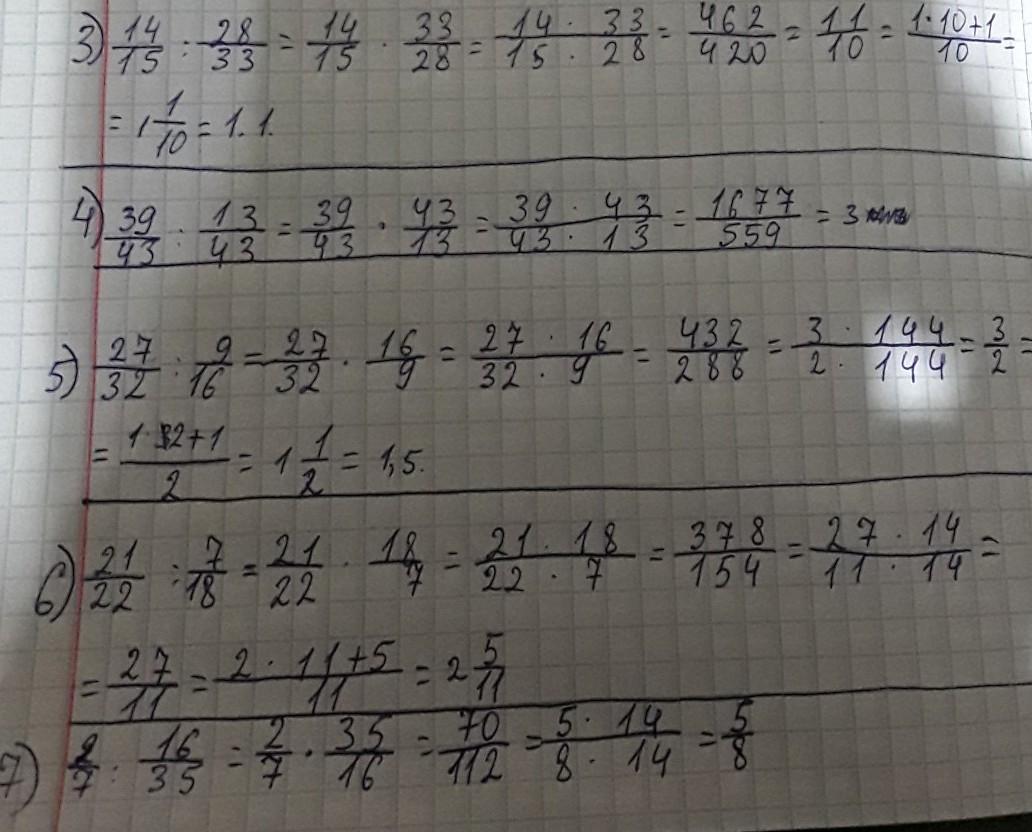 3) 14/15 : 28/33 = 14/15 · 33/28 = 14 · 33/15 · 28 = 462/420 = 11/10 = 1·10+1/10 =
= 1 1/10 = 1.1.
4) 39/43 : 13/43 = 39/43 · 43/13 = 39 · 43/43 · 13 = 1677/559 = 3
5) 27/32 : 9/16 = 27/32 · 16/9 = 27 · 16/32 · 9 = 432/288 = 3 · 144/2 · 144 = 3/2 =
= 1·2+1/2 = 1 1/2 = 1,5.
6) 21/22 : 7/18 = 21/22 · 18/7 = 21 · 18/22 · 7 = 378/154 = 27 · 14/11 · 14 =
= 27/11 = 2 · 11+5/11 = 2 5/11
7) 2/7 : 16/35 = 2/7 · 35/16 = 70/112 = 5 · 14/8 · 14 = 5/8